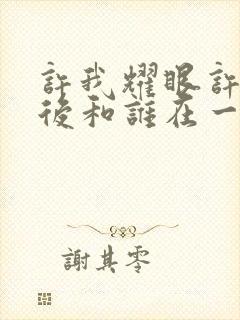 許我耀眼許
後和誰在一
謝其零